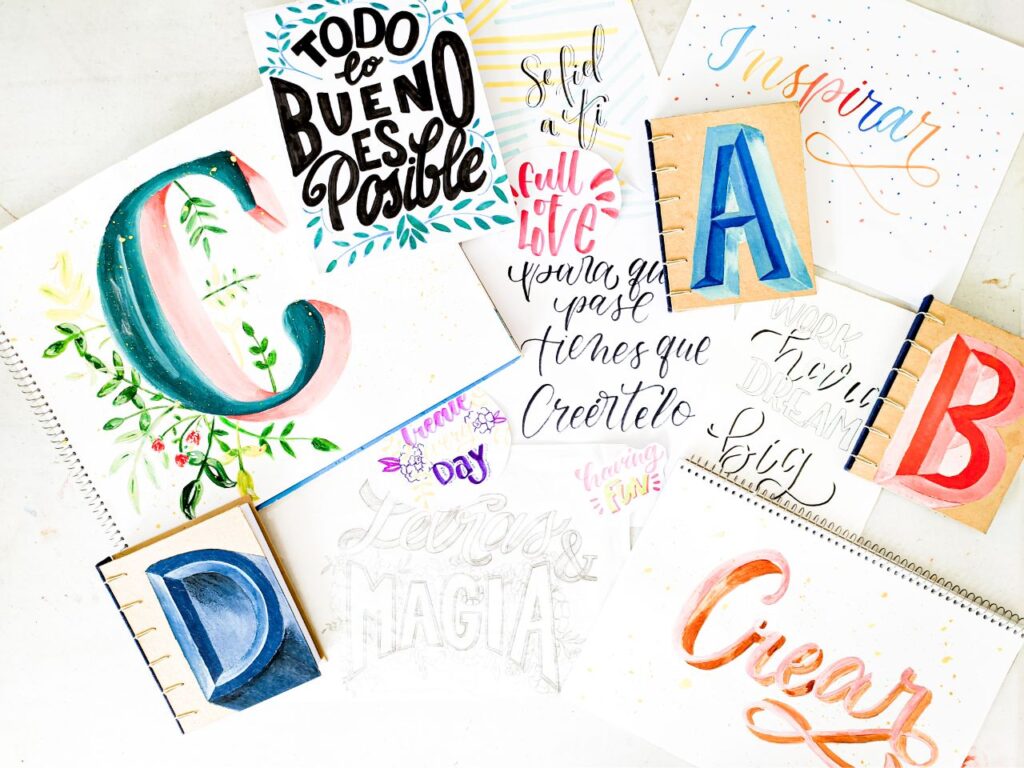 TODO
lo
BUENO
ES
Posible
Se fiel
a ti
Inspirar
C
A
full
LOVE
para qu
pase
tienes que
Creértelo
WORK
DREAM
big
B
Create
DAY
having
FUN
Letras
&
MAGIA
D
Crear